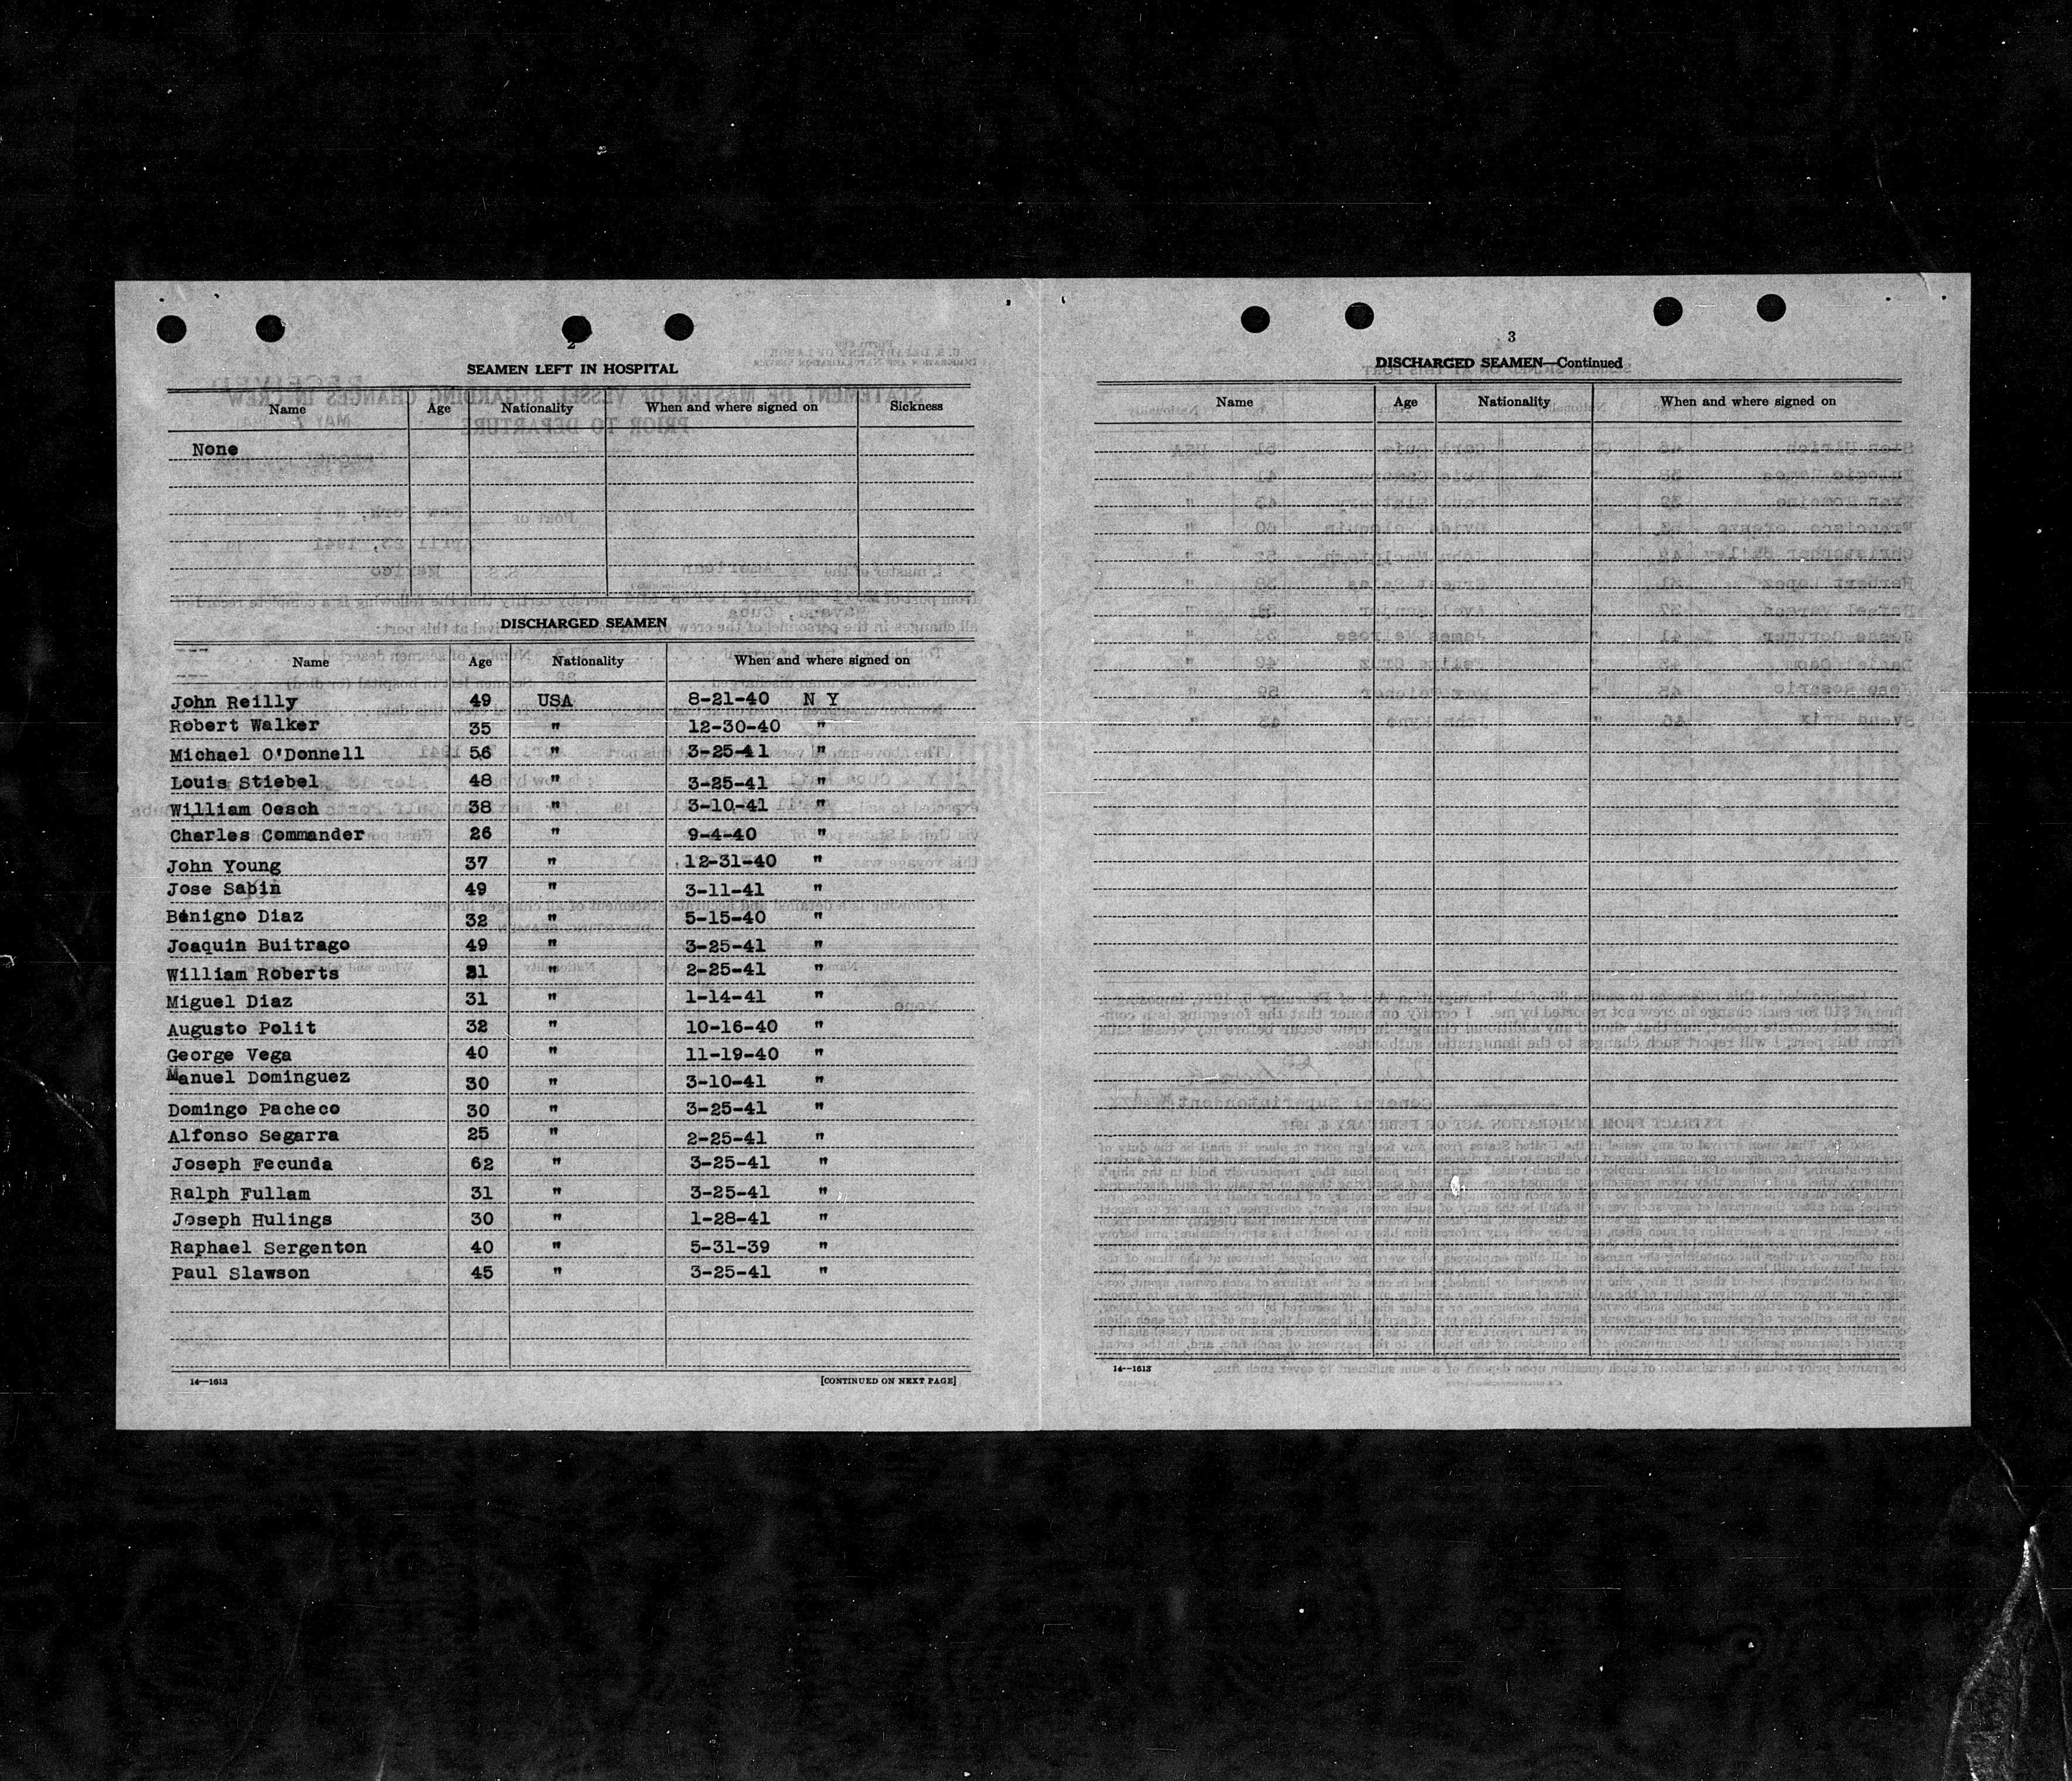 2
SEAMEN LEFT IN HOSPITAL
Name Age Nationality When and where signed on Sickness
None
DISCHARGED SEAMEN
Name Age Nationality When and where signed on
John Reilly 49 USA 8-21-40 N Y
Robert Walker 35 " 12-30-40 "
Michael O'Donnell 56 " 3-25-41 "
Louis Stiebel 48 " 3-25-41 "
William Oesch 38 " 3-10-41 "
Charles Commander 26 " 9-4-40 "
John Young 37 " 12-31-40 "
Jose Sabin 49 " 3-11-41 "
Benigno Diaz 32 " 5-15-40 "
Joaquin Buitrago 49 " 3-25-41 "
William Roberts " 2-25-41 "
Miguel Diaz 31 " 1-14-41 "
Augusto Polit 32 " 10-16-40 "
George Vega 40 " 11-19-40 "
Manuel Dominguez 30 " 3-10-41 "
Domingo Pacheco 30 " 3-25-41 "
Alfonso Segarra 25 " 2-25-41 "
Joseph Fecunda 62 " 3-25-41 "
Ralph Fullam 31 " 3-25-41 "
Joseph Hulings 30 " 1-28-41 "
Raphael Sergenton 40 " 5-31-39 "
Paul Slawson 45 " 3-25-41 "
14—1613 [CONTINUED ON NEXT PAGE]
3
DISCHARGED SEAMEN—Continued
Name Age Nationality When and where signed on
14—1613